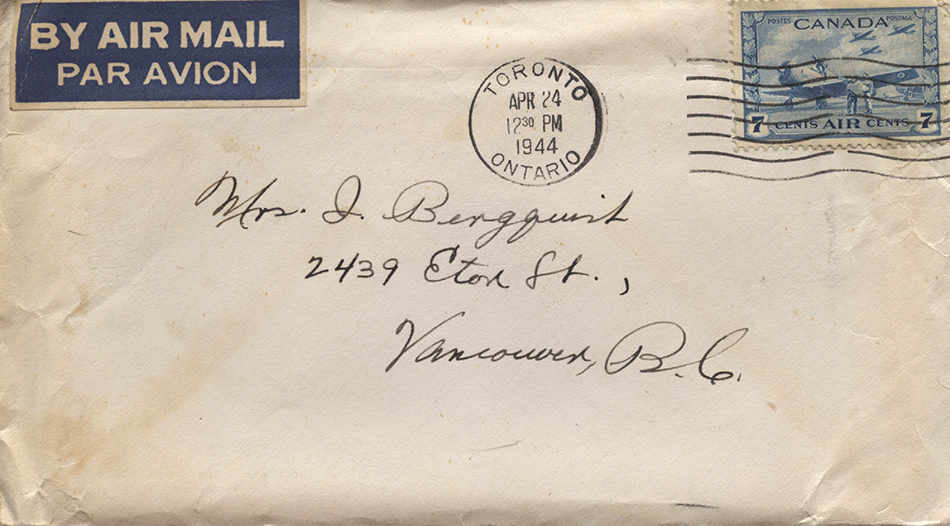 BY AIR MAIL
PAR AVION
TORONTO
APR 24
12³⁰ PM
1944
ONTARIO
POSTES POSTAGE
CANADA
7 CENTS AIR CENTS 7
Mrs. I. Bergquist
2439 Eton St.,
Vancouver, B.C.